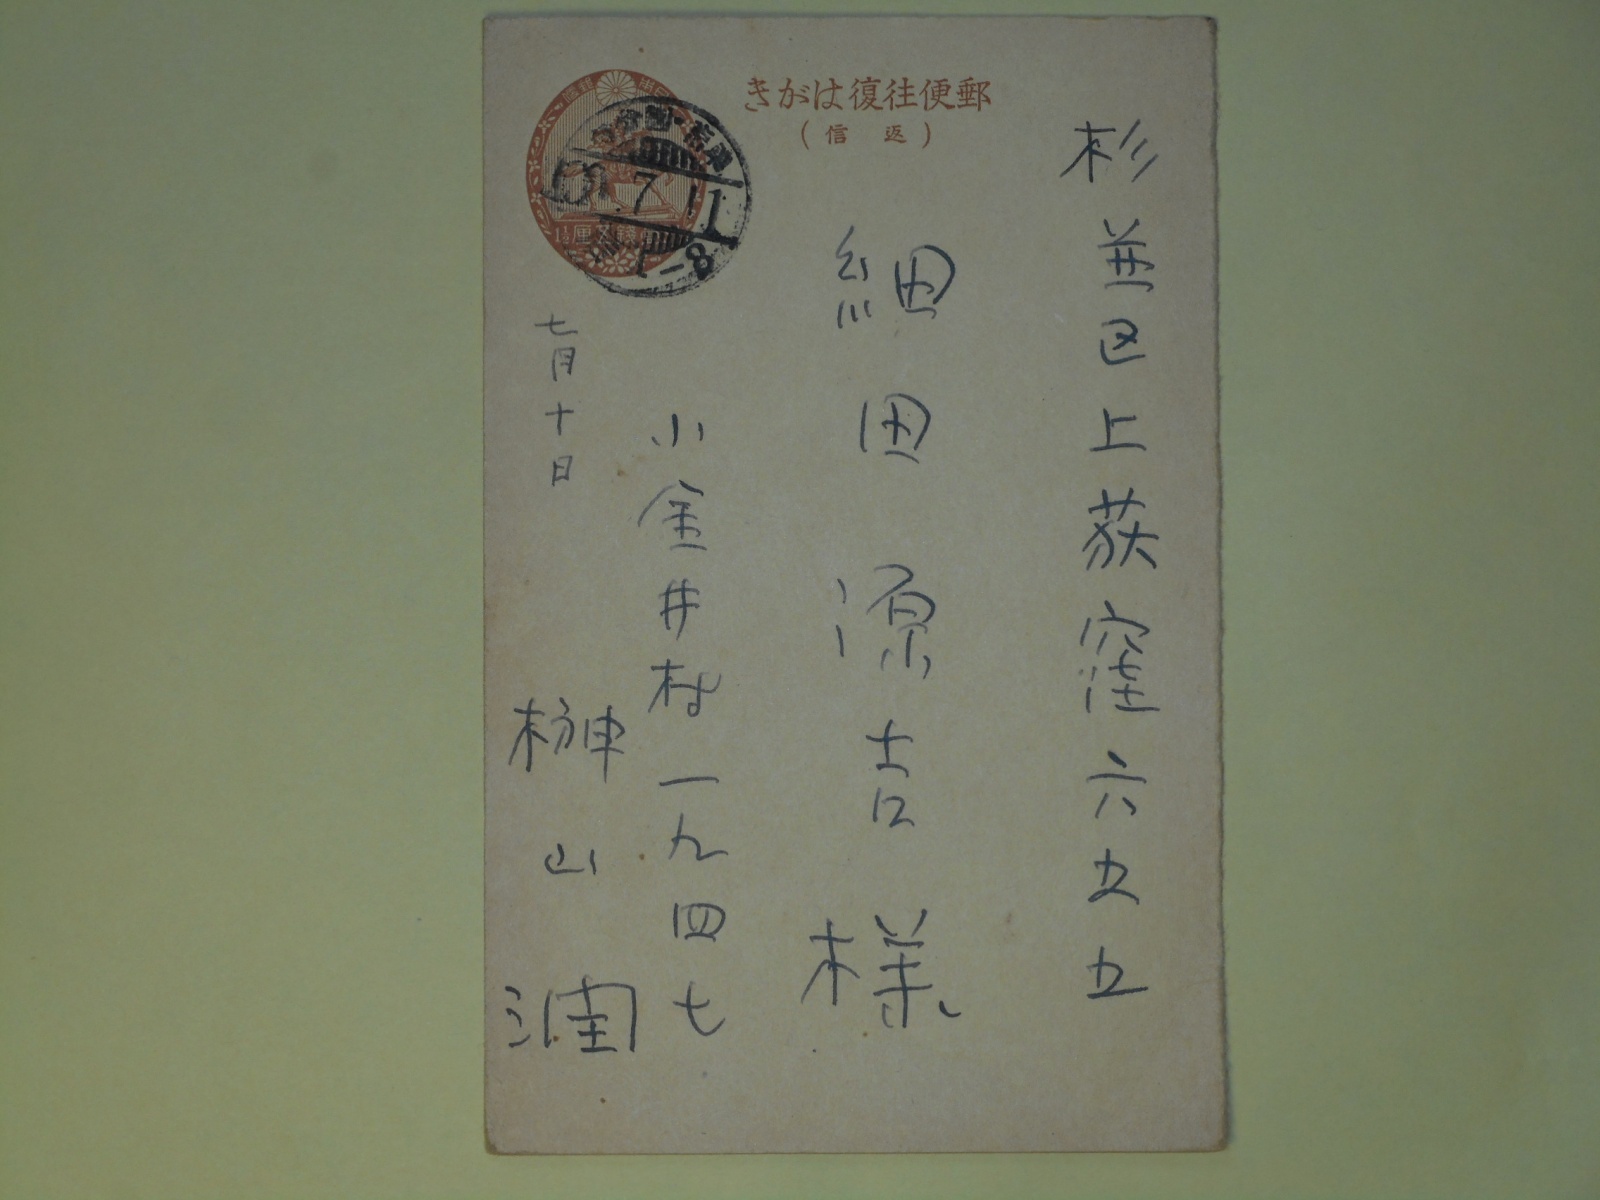 郵便往復はがき
(返信)
壹錢五厘
7.11
-8
杉並区上荻窪六五五
細田源吉様
七月十日
小金井村一九四七
榊山潤